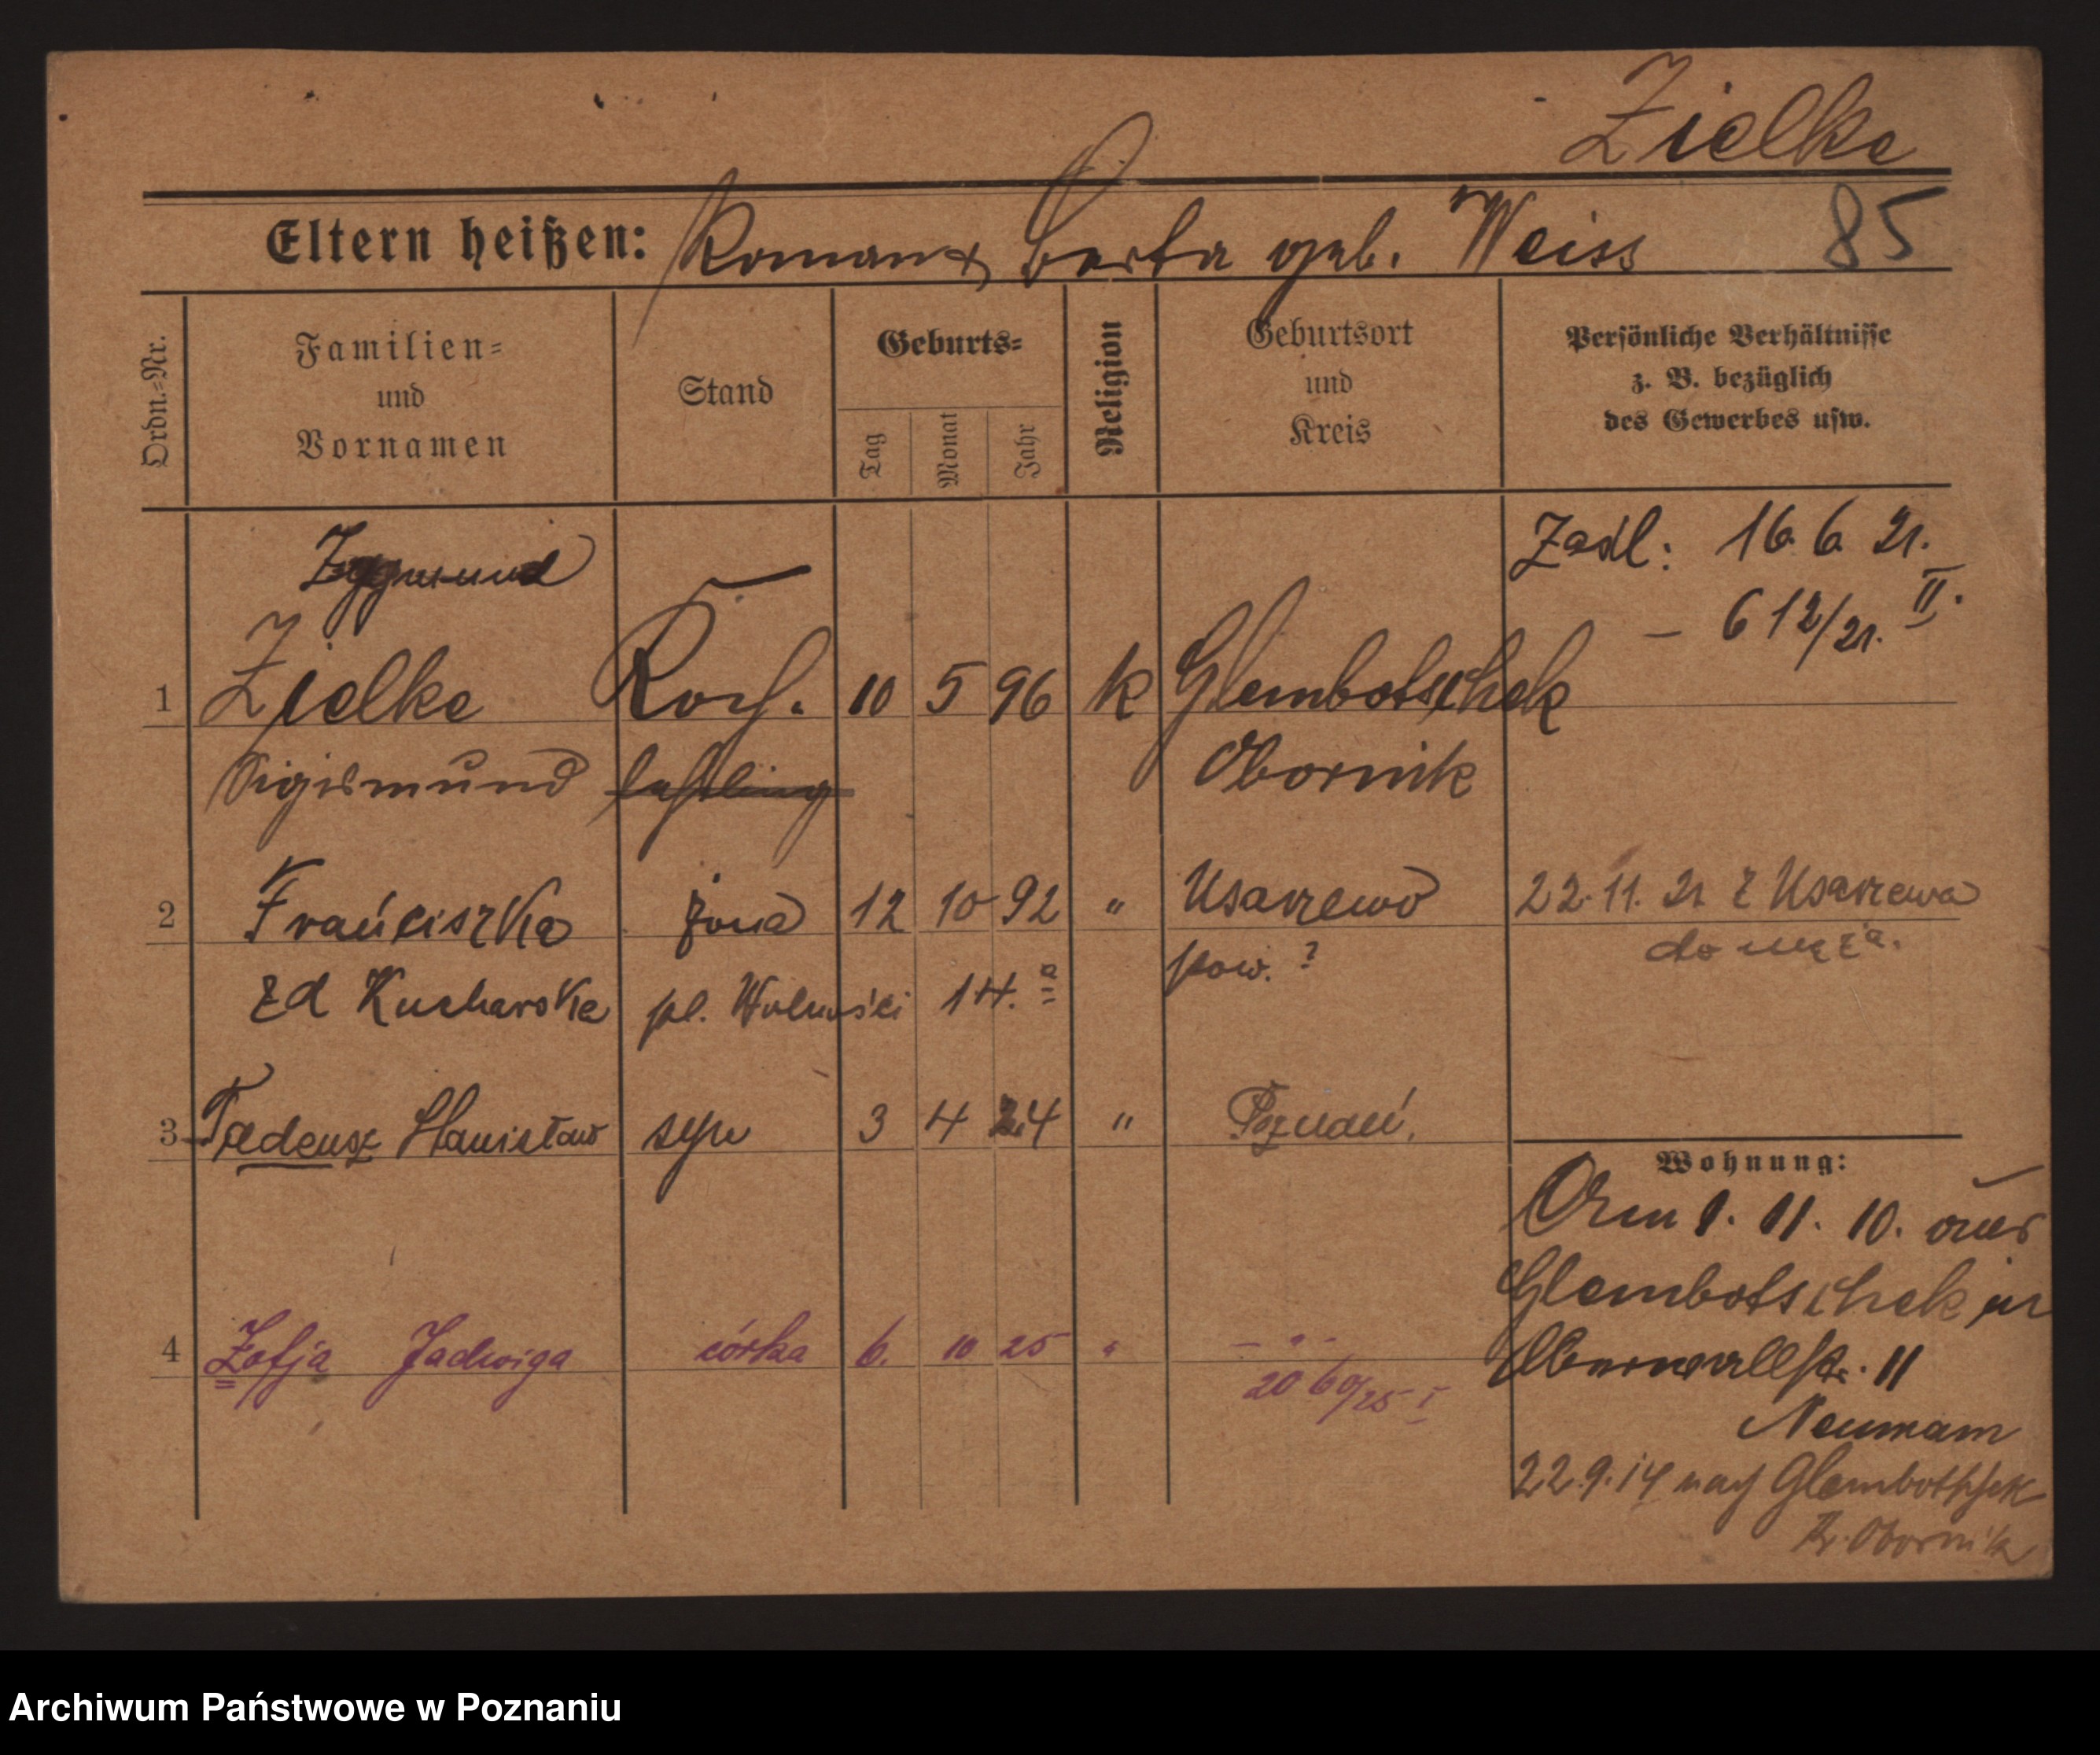 Zielke
Eltern heißen: Roman & Berta geb. Weiss 85
Ordn.=Nr.
Familien=
und
Vornamen
Stand
Geburts=
Tag
Monat
Jahr
Religion
Geburtsort
und
Kreis
Persönliche Verhältnisse
z. B. bezüglich
des Gewerbes usw.
Zygmund
Zadl: 16. 6. 21.
– 612/21. II.
1 Zielke Koch. 10 5 96 k Glembotschek
Sigismund Obornik
2 Franciszka żona 12 10 92 " Usarzewo 22. 11. 21 z Usarzewa
pow. ? do męża.
zd Kucharska pl. Wolności 14. a
3 Tadeusz Stanisław syn 3 4 24 " Poznań.
Wohnung:
Am 1. 11. 10. aus
Glembotschek in
4 Zofja Jadwiga córka 6. 10 25 " – " –
2060/25 I
11
Neumann
22. 9. 14 nach Glembotschek
Kr. Obornik
Archiwum Państwowe w Poznaniu